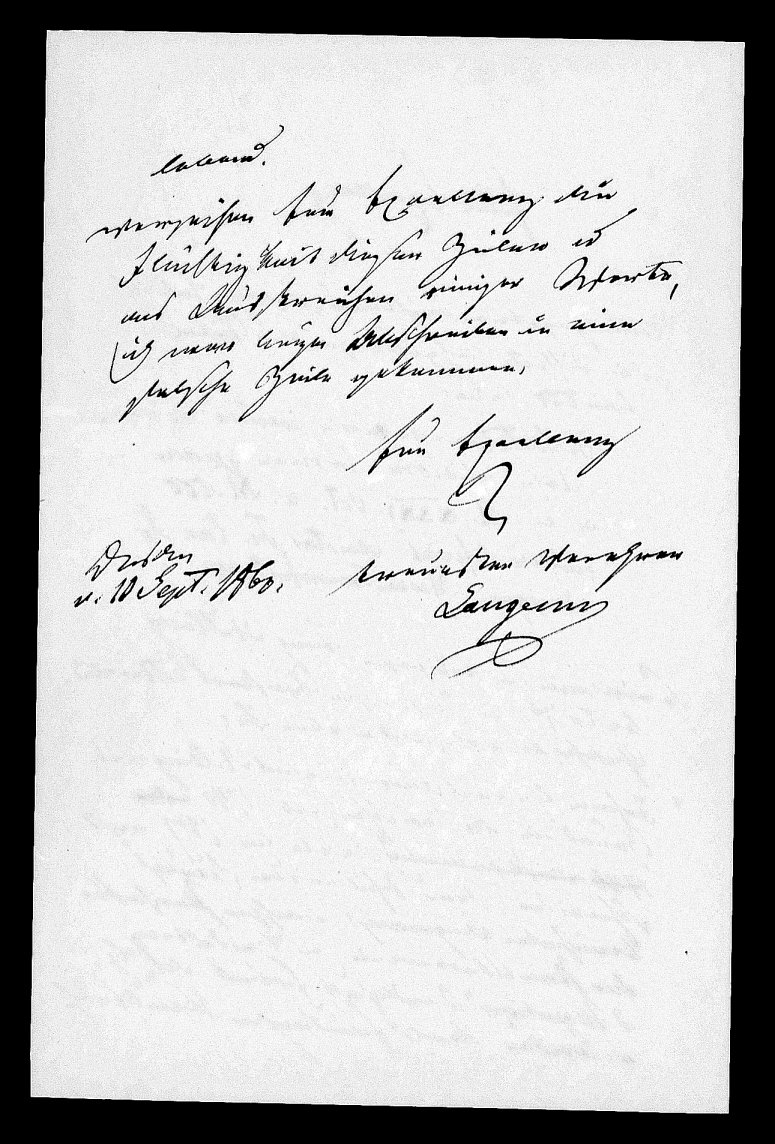 lebend.
Verzeihen Eure Excellenz die
Flüchtigkeit dieser Zeilen u
das Ausstreichen einiger Worte,
ich war beim Abschreiben in eine
falsche Zeile gekommen.
Eure Excellenz
treuester Verehrer
Langenn
Dresden
d. 10 Sept. 1860.